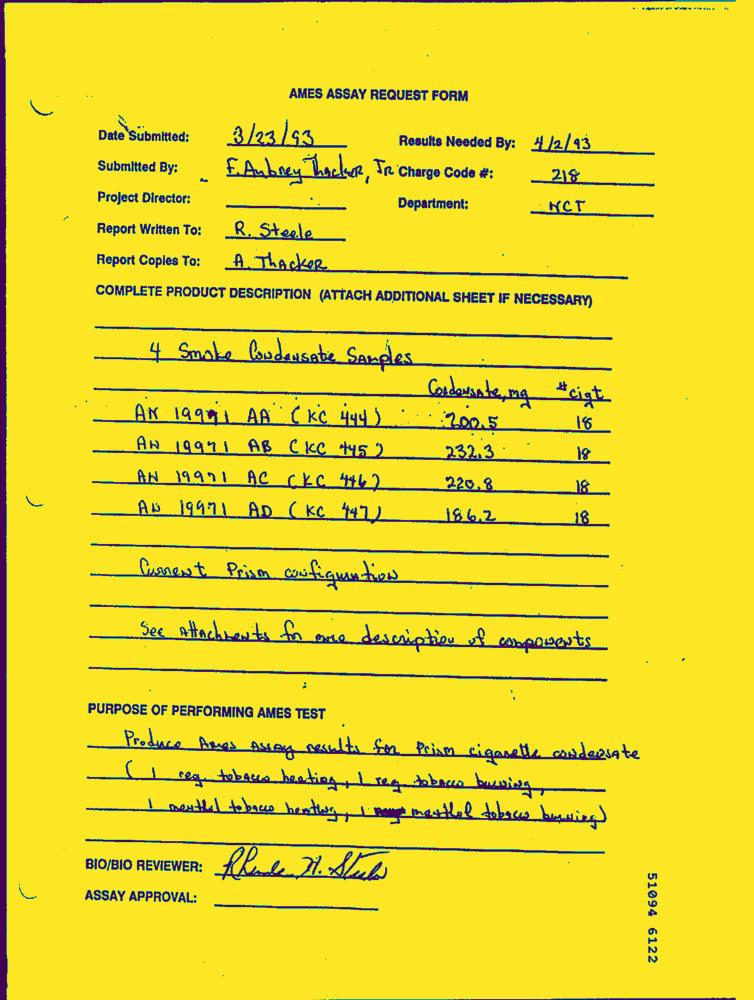 AMES ASSAY REQUEST FORM
Date Submitted: 3/23/93 Results Needed By: 4/2/93
Submitted By: F. Aubrey Thacker, JR Charge Code #: 218
Project Director: Department: NCT
Report Written To: R. Steele
Report Copies To: A. Thacker
COMPLETE PRODUCT DESCRIPTION (ATTACH ADDITIONAL SHEET IF NECESSARY)
4 Smoke Condensate Samples
Condensate, mg #cigt
AN 19971 AA (KC 444) 200.5 18
AN 19971 AB (KC 445) 232.3 18
AN 19971 AC (KC 446) 220.8 18
AN 19971 AD (KC 447) 186.2 18
Current Prism configuration
See Attachments for more description of components
PURPOSE OF PERFORMING AMES TEST
Produce Ames Assay results for Prism cigarette condensate
(1 reg. tobacco heating, 1 reg. tobacco burning,
1 menthol tobacco heating, 1 menthol tobacco burning)
BIO/BIO REVIEWER: H. Steele
ASSAY APPROVAL:
51094 6122